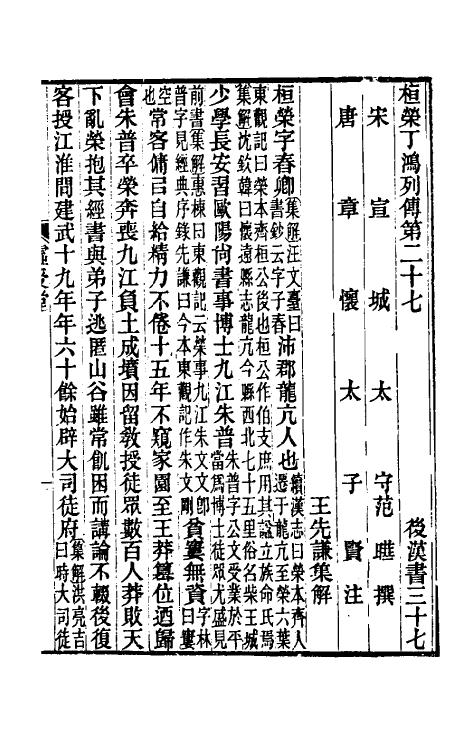 桓榮丁鴻列傳第二十七 後漢書三十七
宋宣城太守范曄撰
唐章懷太子賢注
王先謙集解
桓榮字春卿集解汪文臺曰書鈔云字子春沛郡龍亢人也續漢志曰榮本齊人遷于龍亢至榮六葉
東觀記曰榮本齊桓公後也桓公作伯支庶用其謚立族命氏焉
集解沈欽韓曰懷遠縣志龍亢今縣西北七十五里俗名柴王城
少學長安習歐陽尚書事博士九江朱普朱普字公文受業於平當爲博士徒眾尤盛見
前書集解惠棟曰東觀記云榮事九江朱文文卽普字見經典序錄先謙曰今本東觀記作朱文剛貧窶無資字林曰窶
空也常客傭㠯自給精力不倦十五年不窺家園至王莽篡位迺歸
會朱普卒榮奔喪九江負土成墳因留教授徒眾數百人莽敗天
下亂榮抱其經書與弟子逃匿山谷雖常飢困而講論不輟後復
客授江淮間建武十九年年六十餘始辟大司徒府集解洪亮吉曰時大司徒
虛受堂
一